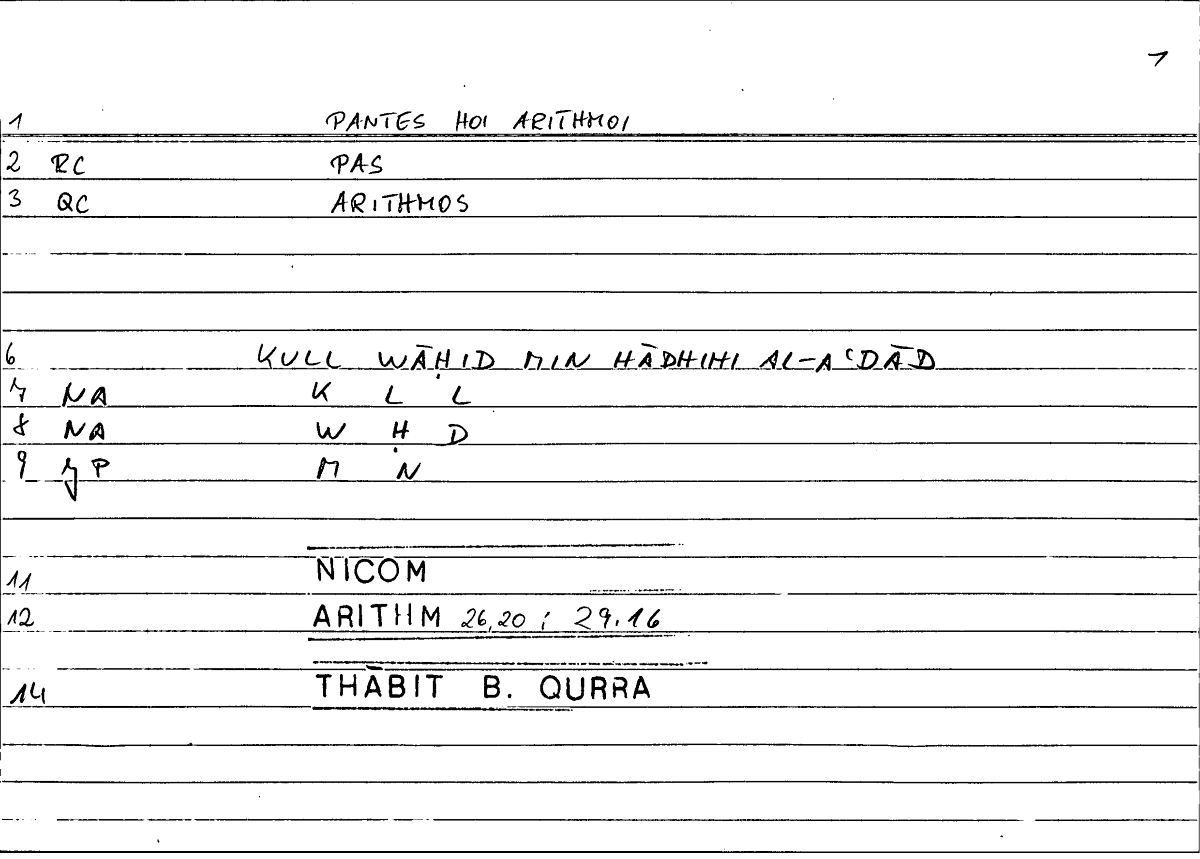 1
1 PANTES HOI ARITHMOI
2 RC PAS
3 QC ARITHMOS
6 KULL WĀḤID MIN HĀDHIHI AL-AʿDĀD
7 NA K L L
8 NA W Ḥ D
9 P M N
11 NICOM
12 ARITHM 26,20 ; 29.16
14 THĀBIT B. QURRA